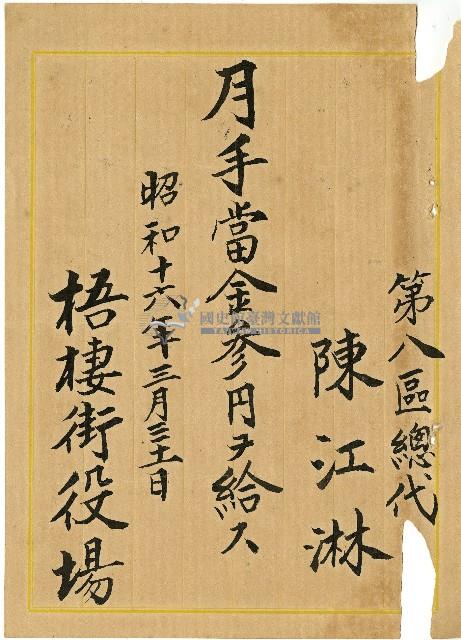 第八區總代
陳江淋
月手當金參円ヲ給ス
昭和十六年三月三十一日
梧棲街役場
國史館臺灣文獻館
TAIWAN HISTORICA